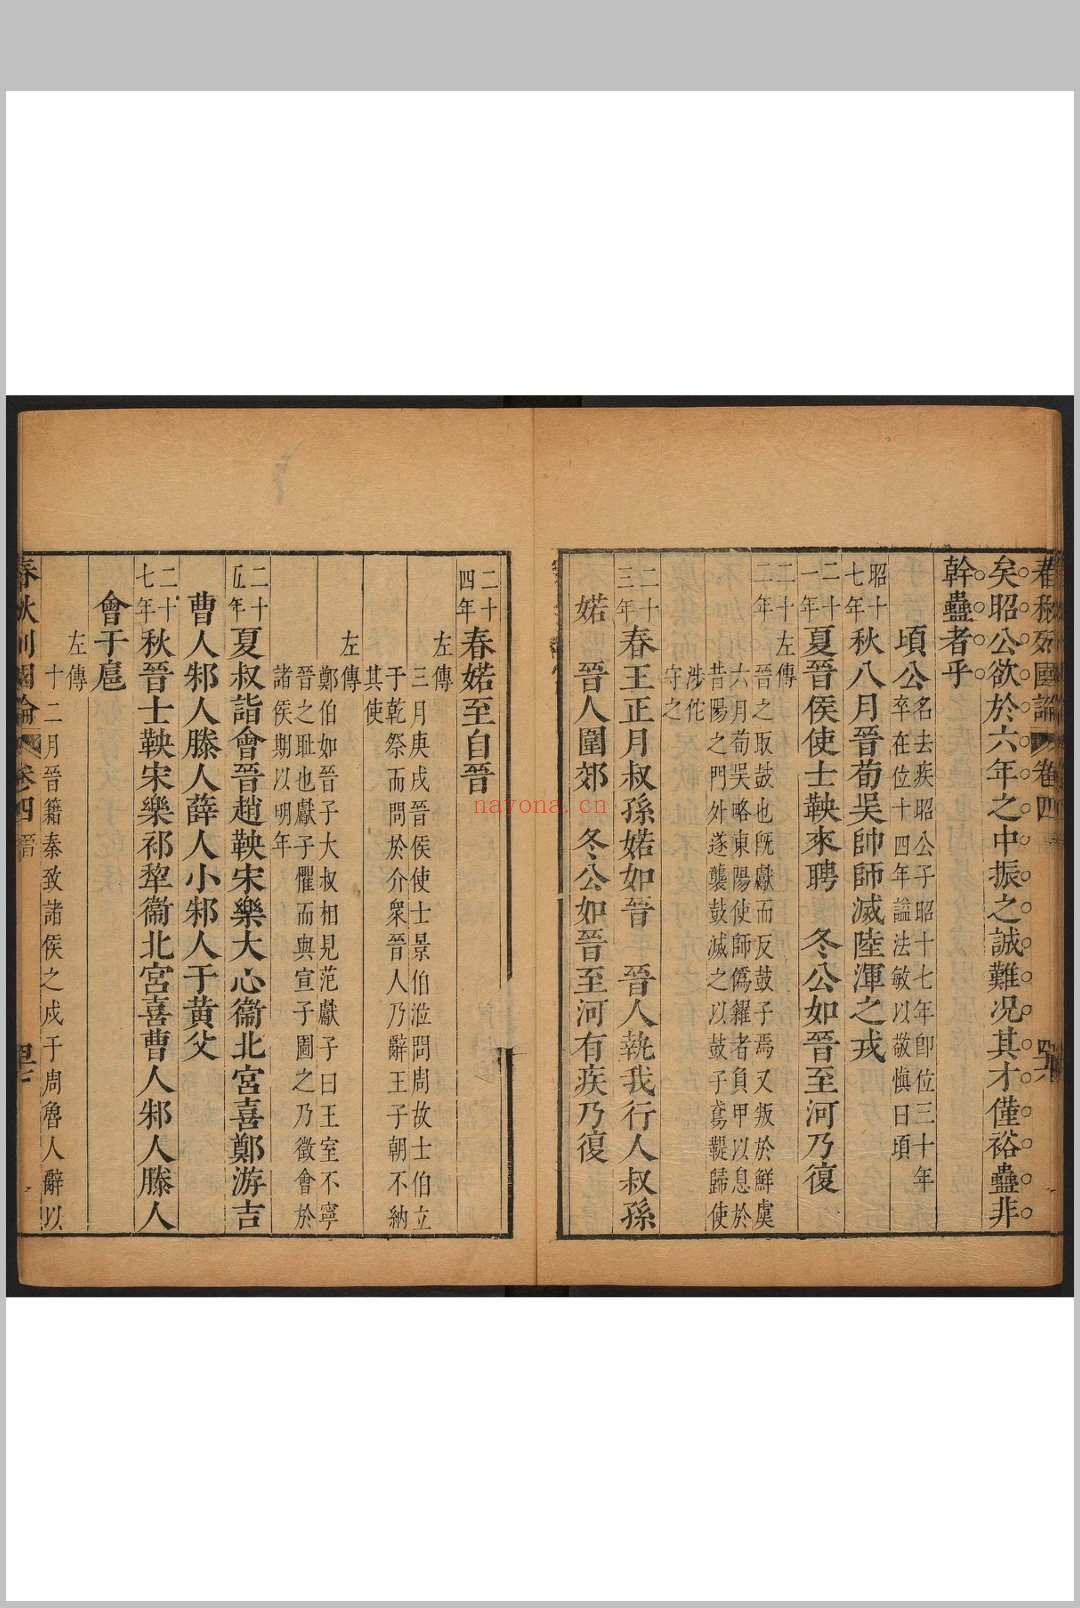 春秋列國論 卷四
矣昭公欲於六年之中振之誠難况其才僅裕蠱非
幹蠱者乎
頃公名去疾昭公子昭十七年卽位三十年
卒在位十四年謚法敏以敬慎曰頃
昭十七年秋八月晉荀吳帥師滅陸渾之戎
二十一年夏晉侯使士鞅來聘 冬公如晉至河乃復
二十二年左傳晉之取鼓也旣獻而反鼓子焉又叛於鮮虞
六月荀吳略東陽使師僞糴者負甲以息於
昔陽之門外遂襲鼓滅之以鼓子鳶鞮歸使
涉佗
守之
二十三年春王正月叔孫婼如晉 晉人執我行人叔孫
婼 晉人圍郊 冬公如晉至河有疾乃復
二十四年春婼至自晉
左傳三月庚戌晉侯使士景伯涖問周故士伯立
于乾祭而問於介衆晉人乃辭王子朝不納
其使
左傳鄭伯如晉子大叔相見范獻子曰王室不寧
晉之耻也獻子懼而與宣子圖之乃徵會於
諸侯期以明年
二十五年夏叔詣會晉趙鞅宋樂大心衞北宮喜鄭游吉
曹人邾人滕人薛人小邾人于黃父
二十七年秋晉士鞅宋樂祁犂衞北宮喜曹人邾人滕人
會于扈
左傳十二月晉籍秦致諸侯之戍于周魯人辭以
春秋列國論 卷四 晉
navona.cn